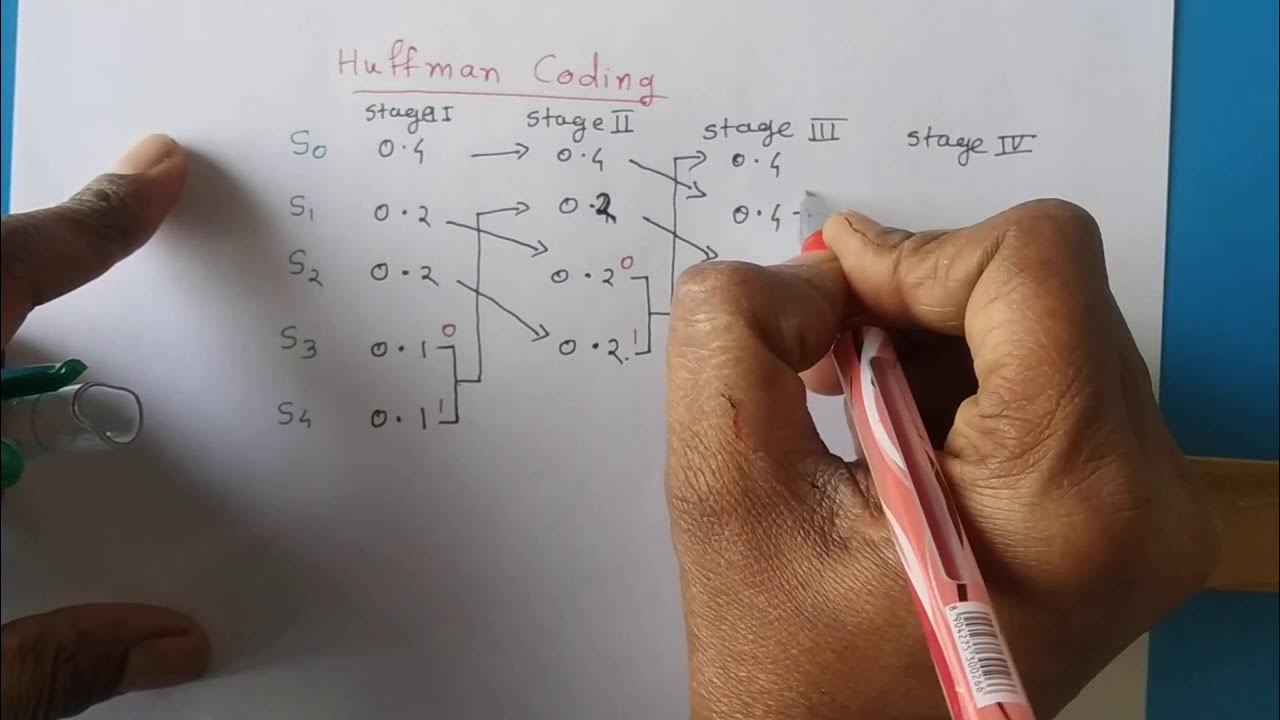 Huffman Coding
stage I stage II stage III stage IV
S0 0.4 0.4 0.4
S1 0.2 0.2 0.4
S2 0.2 0.2 0
S3 0.1 0 0.2 1
S4 0.1 1
8904275300266